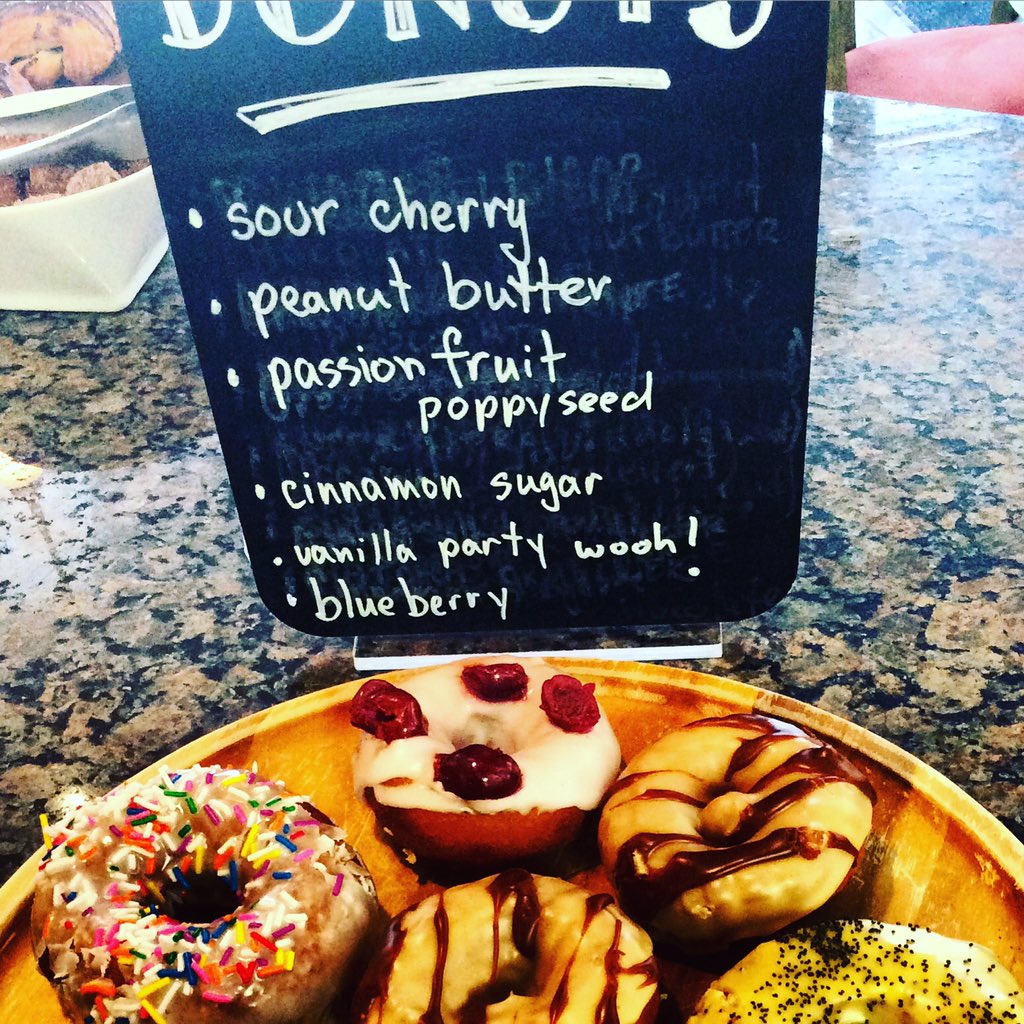 DONUTS
• sour cherry
• peanut butter
• passion fruit
poppyseed
• cinnamon sugar
• vanilla party wooh!
• blueberry